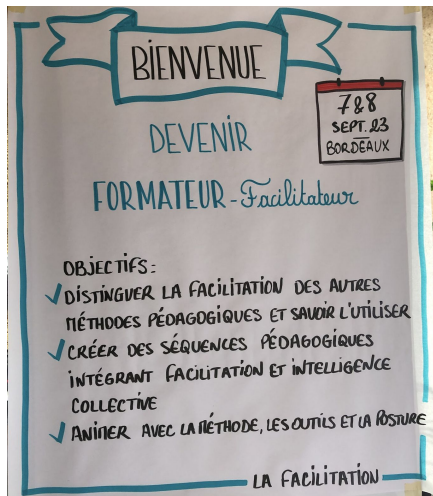 BIENVENUE
7&8
SEPT. 23
BORDEAUX
DEVENIR
FORMATEUR - Facilitateur
OBJECTIFS:
DISTINGUER LA FACILITATION DES AUTRES
MÉTHODES PÉDAGOGIQUES ET SAVOIR L'UTILISER
CRÉER DES SÉQUENCES PÉDAGOGIQUES
INTÉGRANT FACILITATION ET INTELLIGENCE
COLLECTIVE
ANIMER AVEC LA MÉTHODE, LES OUTILS ET LA POSTURE
LA FACILITATION